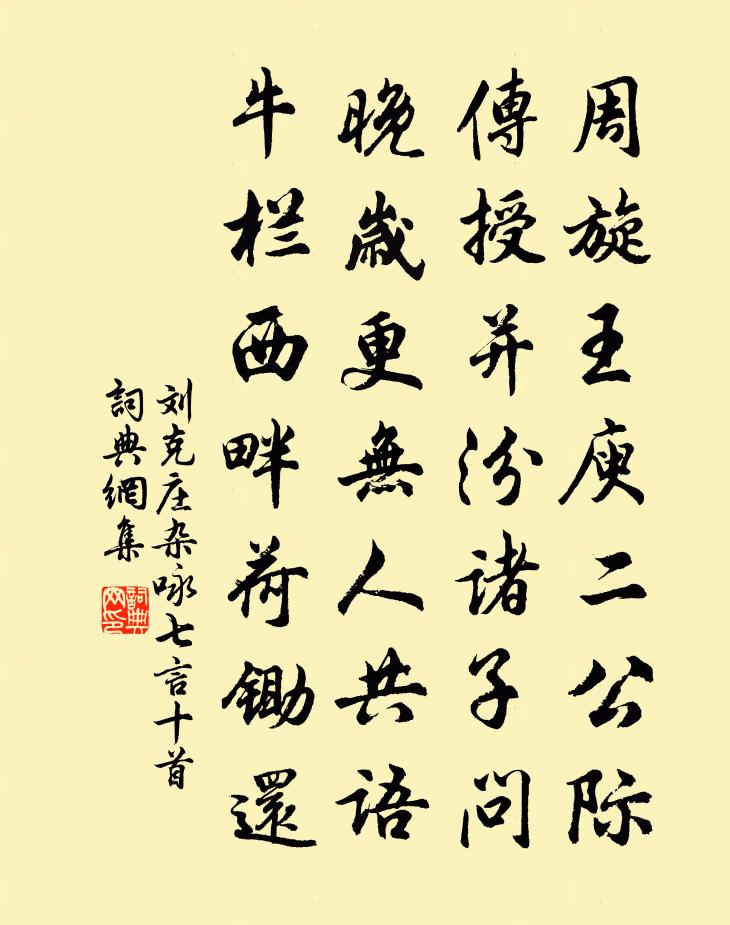 周旋王庾二公际
傳授并汾诸子问
晚歲更無人共語
牛栏西畔荷鋤還
刘克庄杂咏七言十首
詞典網集
詞典网印